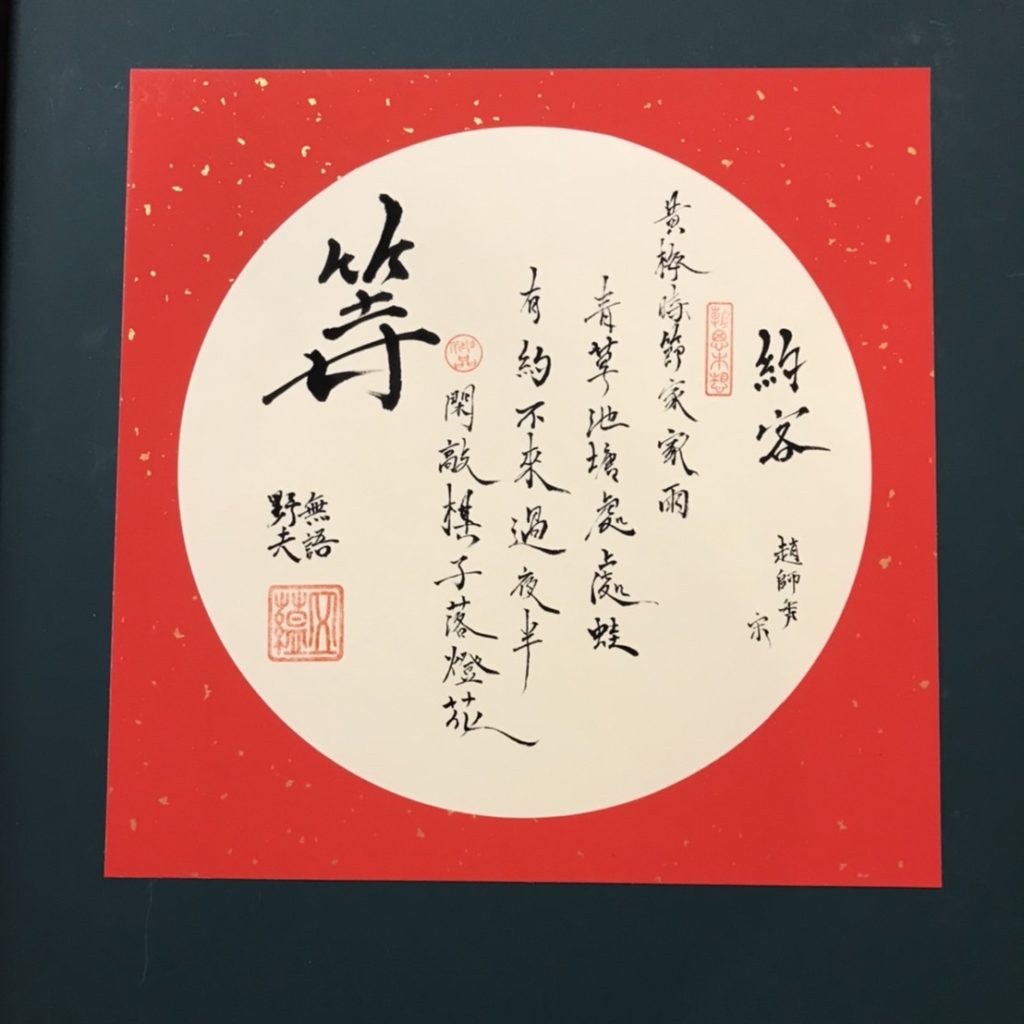 約客
趙師秀
宋
黃梅時節家家雨
青草池塘處處蛙
有約不來過夜半
閑敲棋子落燈花
等
無語
野夫